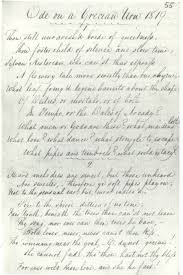 55
Ode on a Grecian Urn 1819.
Thou still unravish'd bride of quietness,
Thou foster child of silence and slow time,
Sylvan Historian, who can'st thus express
A flowery tale more sweetly than our rhyme:
What leaf-fring'd legend haunts about thy shape
Of Deities or mortals, or of both,
In Tempe, or the Dales of Arcady?
What men or Gods are these? what maidens loth?
What love? what dance? what struggle to escape?
What pipes and timbrels? what wild extacy?
2
Heard melodies are sweet, but those unheard
Are sweeter, therefore ye soft pipes play on;
Not to the sensual ear, but, more endear'd,
Pipe to the spirit ditties of no tone:
Fair youth, beneath the trees thou can'st not leave
Thy song, nor ever can those trees be bare
Bold lover, never, never canst thou kiss
winning near the goal, O, do not grieve!
She cannot fade, tho' thou hast not thy bliss
For ever wilt thou love, and she be fair!